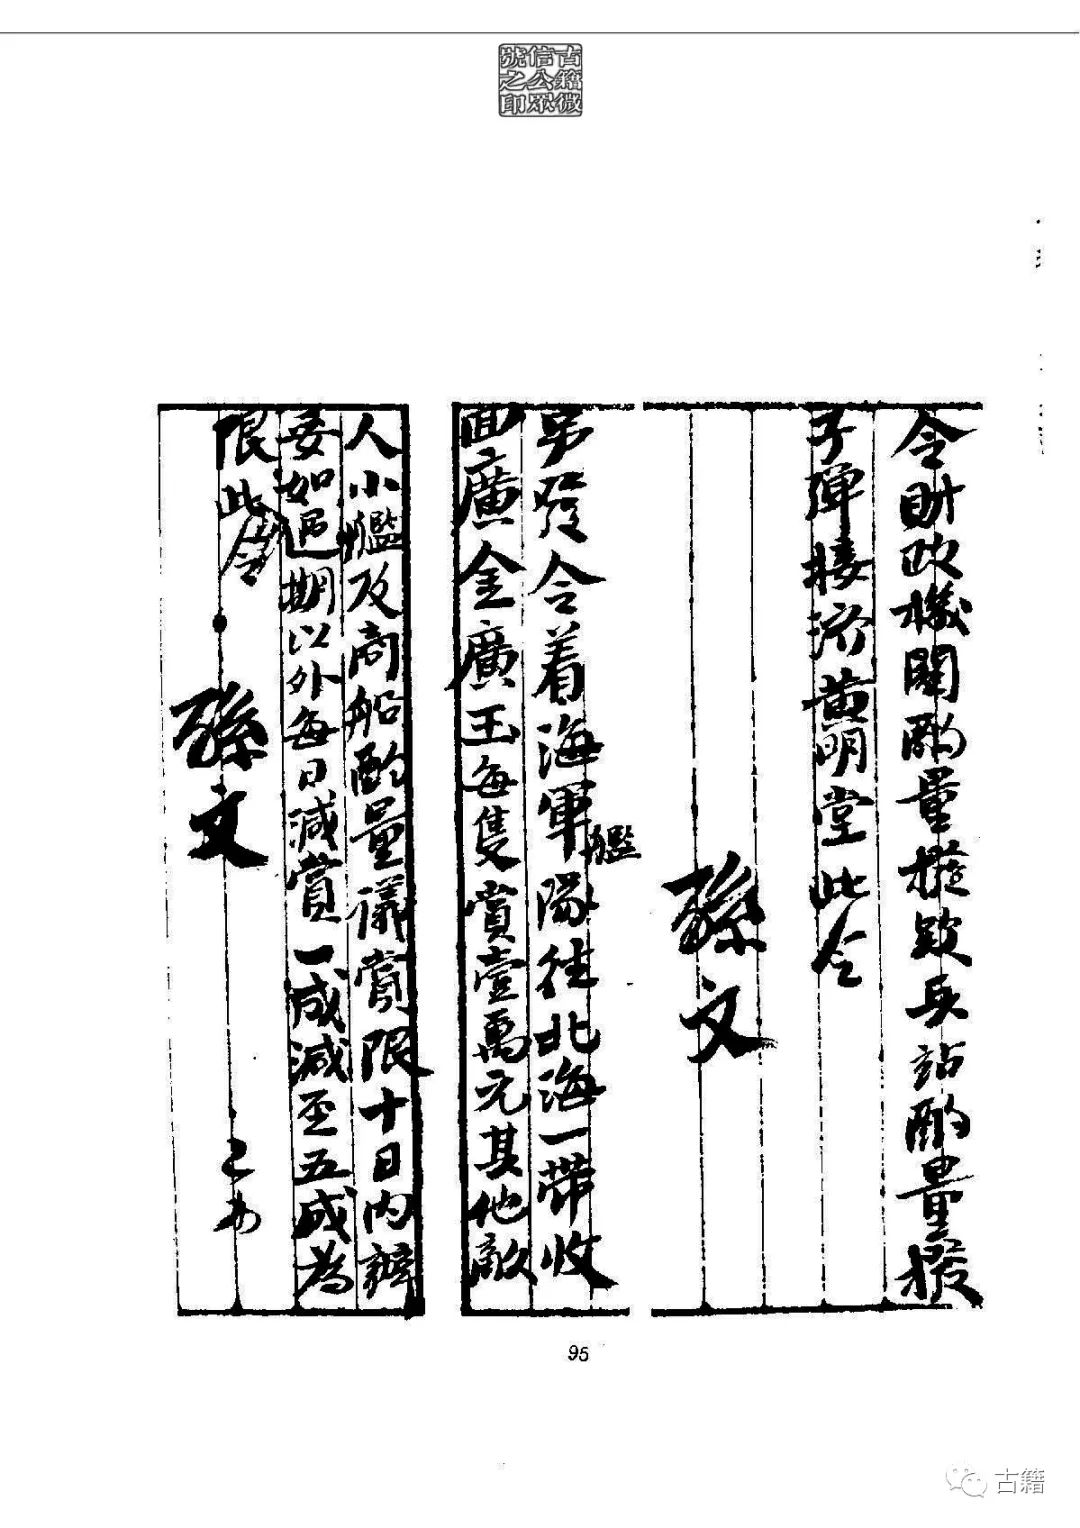 古籍微
信公眾
號之印
令財政機關酌量撥款兵站酌量撥
子彈接濟黃明堂此令
孫文
另發令着海軍艦隊往北海一帶收
囬廣金廣玉每隻賞壹萬元其他敵
人小艦及商船酌量儀賞限十日內辦
妥如過期以外每日減賞一成減至五成為
限此令
孫文
已办
95
古籍